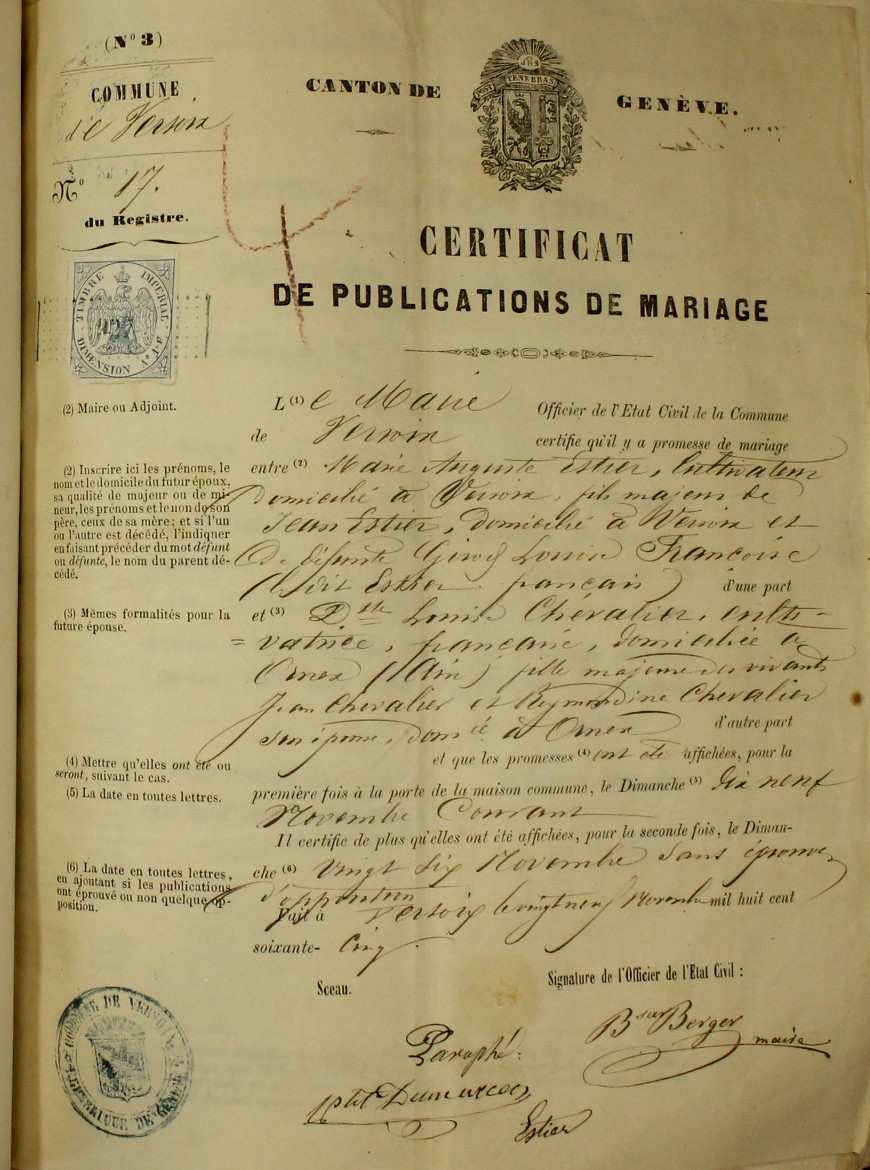 (N° 3)
COMMUNE
de Versoix
N° 17.
du Registre.
CANTON DE GENÈVE.
POST TENEBRAS
JHS
CERTIFICAT
DE PUBLICATIONS DE MARIAGE
TIMBRE IMPÉRIAL
DIMENSION
(2) Maire ou Adjoint.
L (1) e Maire Officier de l'Etat Civil de la Commune
de Versoix certifie qu'il y a promesse de mariage
(2) Inscrire ici les prénoms, le
nom et le domicile du futur époux,
sa qualité de majeur ou de mi-
neur, les prénoms et le nom de son
père, ceux de sa mère; et si l'un
ou l'autre est décédé, l'indiquer
en faisant précéder du mot défunt
ou défunte, le nom du parent dé-
cédé.
entre (2) Marie Auguste Estier, Cultivateur
Domicilié à Versoix, fils majeur de
Jean Estier, Domicilié à Versoix et
de défunte Louise Françoise
dit Estier français d'une part
(3) Mêmes formalités pour la
future épouse.
et (3) Dlle Louise Chevalier, culti-
=vatrice, française, domiciliée à
Ornex (Ain) fille majeure des vivants
Jean Chevalier et Reymondine Chevalier
son épouse, domcié à Ornex d'autre part
(4) Mettre qu'elles ont été ou
seront, suivant le cas.
et que les promesses (4) ont été affichées, pour la
(5) La date en toutes lettres.
première fois à la porte de la maison commune, le Dimanche (5) dix neuf
Novembre Courant
Il certifie de plus qu'elles ont été affichées, pour la seconde fois, le Diman-
(6) La date en toutes lettres,
en ajoutant si les publications
ont éprouvé ou non quelque op-
position.
che (6) Vingt six Novembre sans éprouver
d'opposition
Fait à Versoix le vingt neuf Novembre mil huit cent
soixante- Cinq
Sceau. Signature de l'Officier de l'Etat Civil :
COMMUNE DE VERSOIX
RÉPUBLIQUE DE GENÈVE
Berger
maire
Paraphé:
Estier